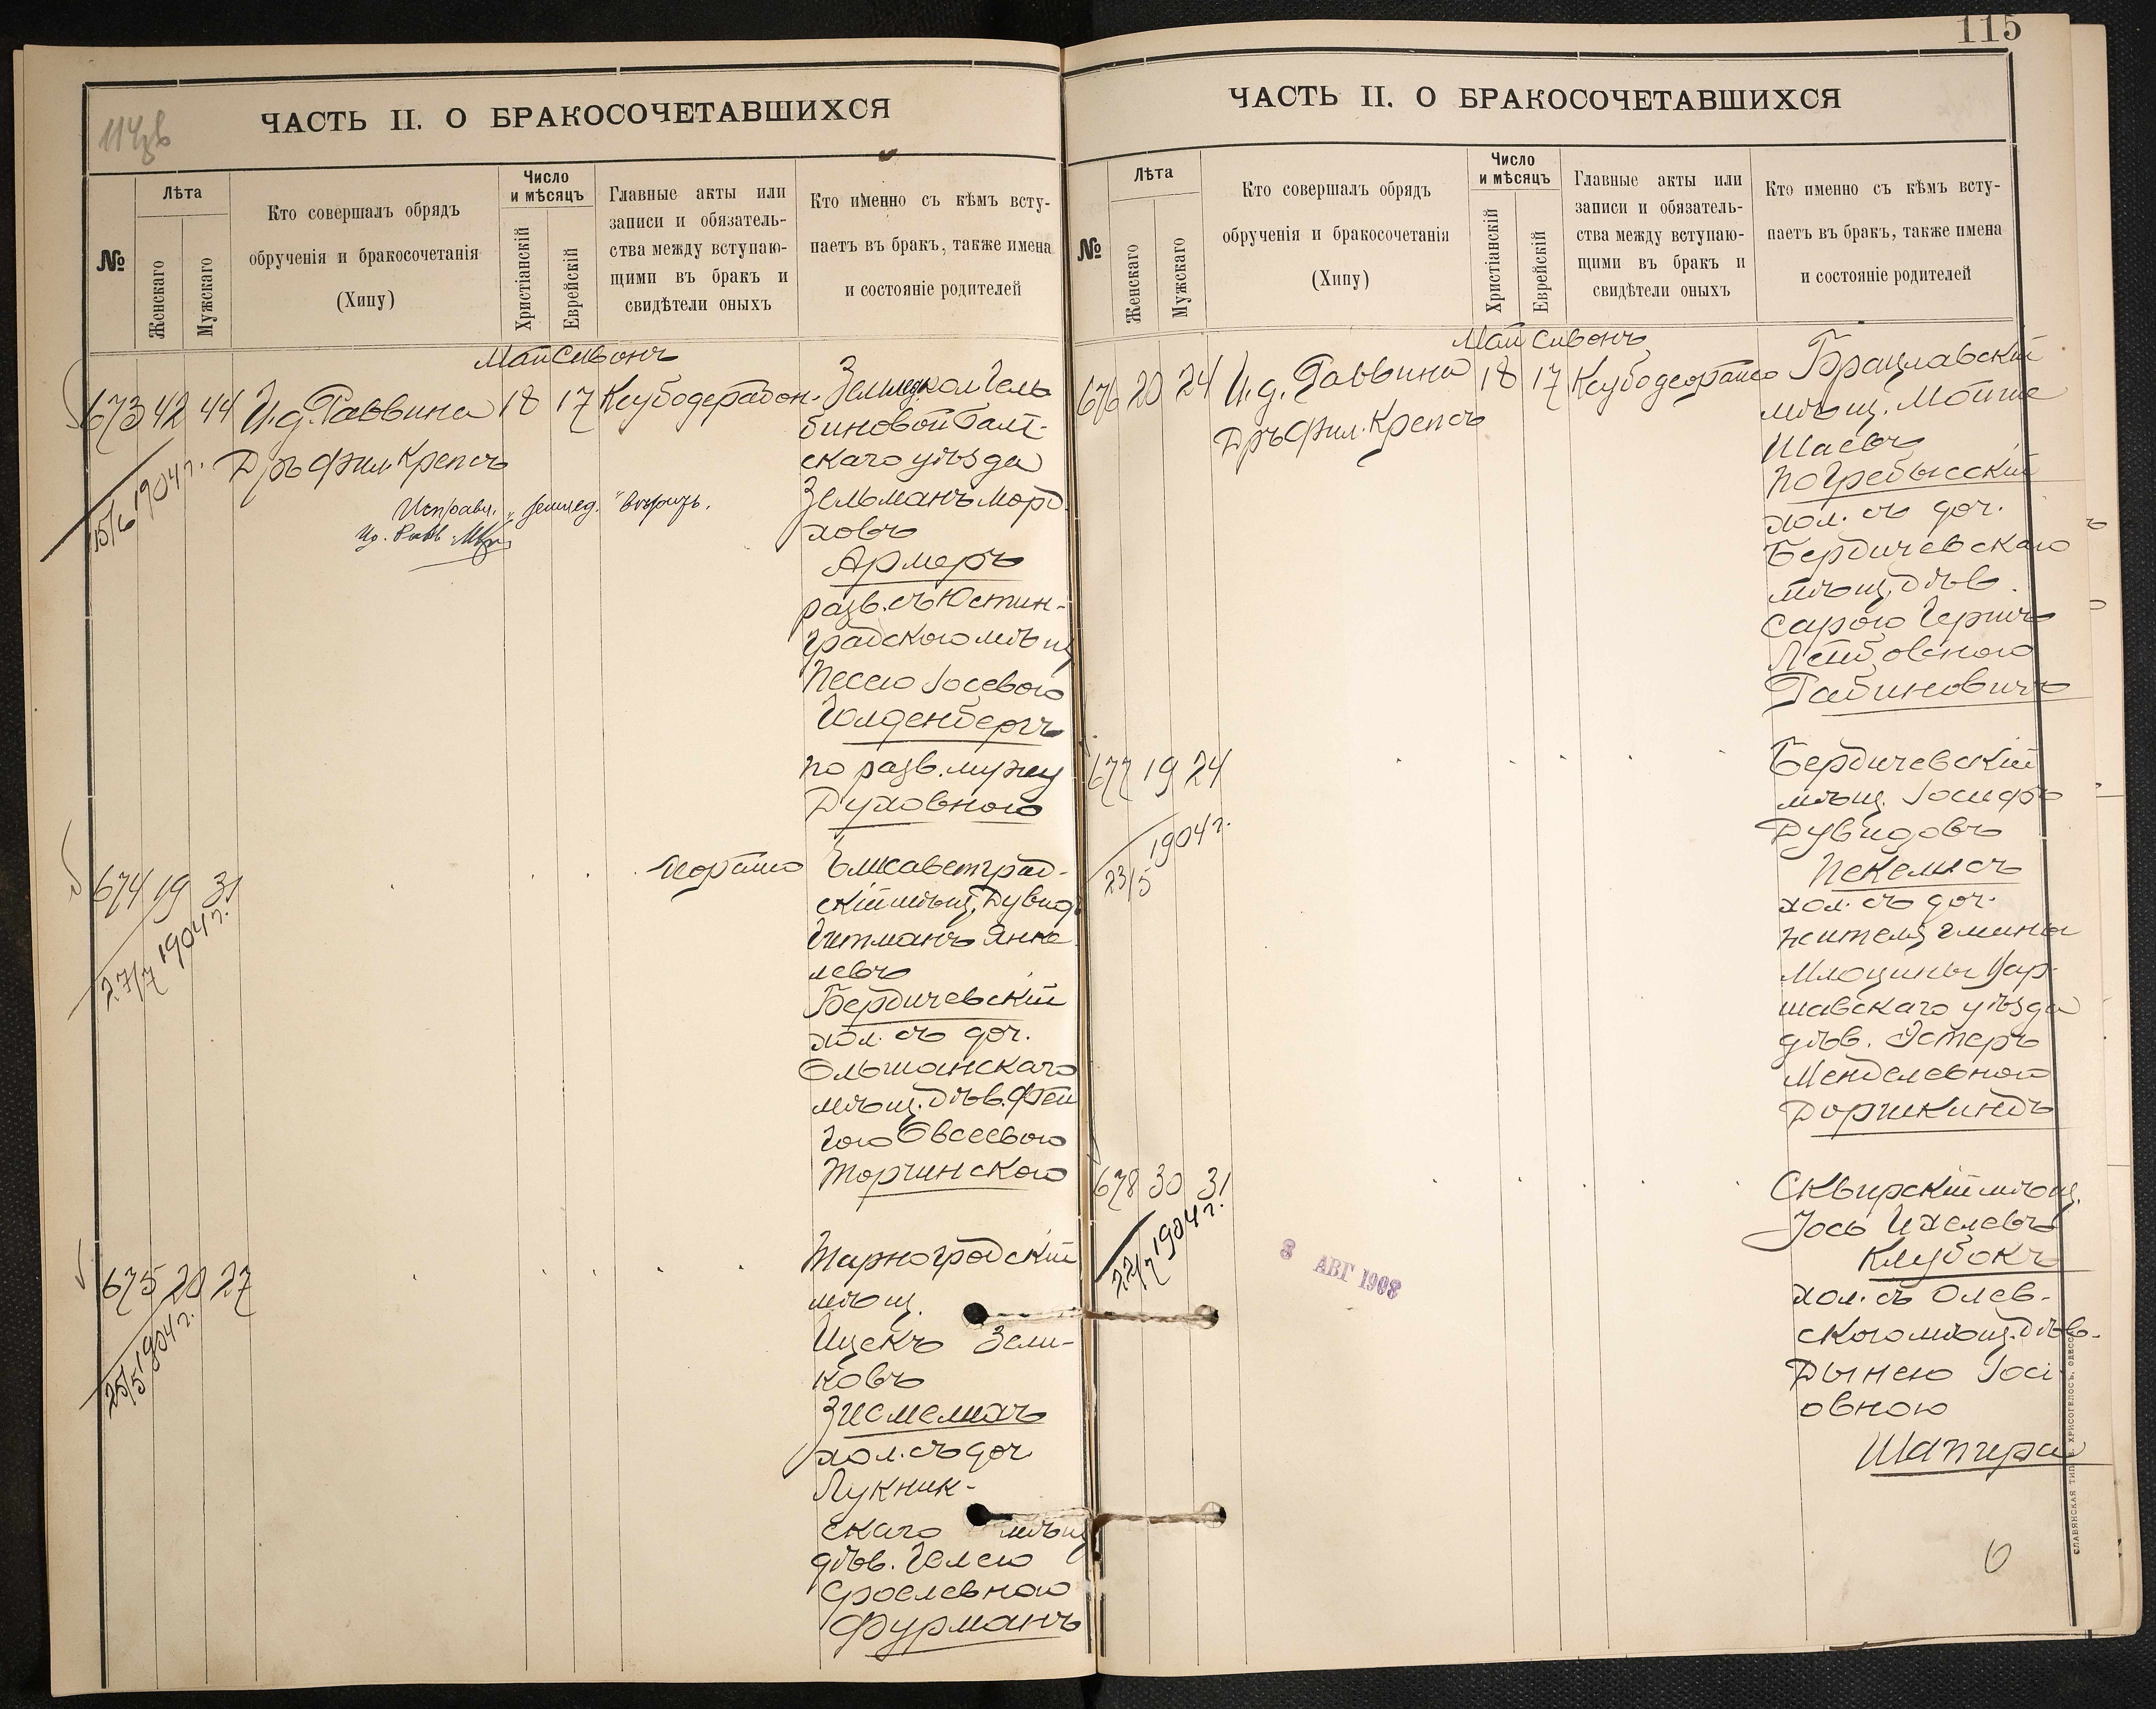 114 зв
ЧАСТЬ II. О БРАКОСОЧЕТАВШИХСЯ
№
Лѣта
Женскаго
Мужскаго
Кто совершалъ обрядъ
обрученія и бракосочетанія
(Хипу)
Число
и мѣсяцъ
Христіанскій
Еврейскій
Главные акты или
записи и обязатель-
ства между вступаю-
щими въ бракъ и
свидѣтели оныхъ
Кто именно съ кѣмъ всту-
паетъ въ бракъ, также имена
и состояніе родителей
Май Сивонъ
673 42 44 И.д. Раввина 18 17
Дръ Фил. Крепсъ
15/6 1904 г.
Исправл. "земелед." вѣрить.
биновой Балт-
скаго уѣзда
Зельманъ Морд
ховъ
Армеръ
разв. съ Юстин-
градскою мѣщ
Песею Іосевою
Голденбергъ
по разв. мужу
Духовною
674 19 31
27/7 1904 г.
Елисаветград-
скій мѣщ. Дувид
Гитманъ Янке
левъ
Бердичевскій
хол. съ доч.
Ольшанскаго
мѣщ. дѣв. Фей
гою Овсеевою
Торчинскою
675 20 27
25/5 1904 г.
Тарноградскій
мѣщ.
Ицекъ Зели-
ковъ
Зисмелихъ
хол. съ доч
Лукник-
скаго мѣщ
дѣв. Гелею
Сроелевною
Фурманъ
115
ЧАСТЬ II. О БРАКОСОЧЕТАВШИХСЯ
№
Лѣта
Женскаго
Мужскаго
Кто совершалъ обрядъ
обрученія и бракосочетанія
(Хипу)
Число
и мѣсяцъ
Христіанскій
Еврейскій
Главные акты или
записи и обязатель-
ства между вступаю-
щими въ бракъ и
свидѣтели оныхъ
Кто именно съ кѣмъ всту-
паетъ въ бракъ, также имена
и состояніе родителей
Май Сивонъ
676 20 24 И.д. Раввина 18 17
Дръ Фил. Крепсъ
Брацлавскій
мѣщ. Мотте
Шаевъ
Погребысскій
хол. съ доч.
Бердичевскаго
мѣщ. дѣв.
Сарою Герпиъ
Лейбовною
Рабиновичъ
677 19 24
23/5 1904 г.
Бердичевскій
мѣщ. Іосифъ
Дувидовъ
Пекелисъ
хол. съ доч.
жителя гмины
Млоцины Вар-
шавскаго уѣзда
дѣв. Эстеръ
Менделевною
Доршкиндъ
678 30 31
22/7 1904 г.
3 АВГ 1908
Сквирскій мѣщ.
Іось Ихелевъ
Клубокъ
хол. съ Олев-
скою мѣщ. дѣв.
Дынею Іосі
овною
Шапира
СЛАВЯНСКАЯ ТИП. Н. ХРИСОГЕЛОСЪ, ОДЕССА